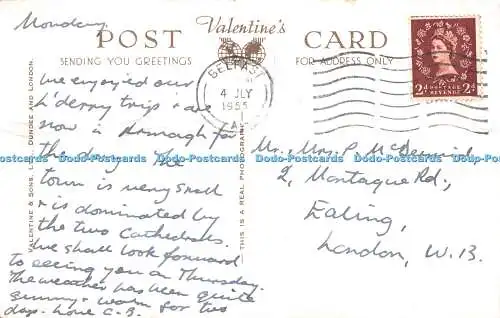 Monday.
POST Valentine's CARD
SENDING YOU GREETINGS
FOR ADDRESS ONLY
BELFAST
4 JLY
1955
2d POSTAGE REVENUE 2d
VALENTINE & SONS, LTD. DUNDEE AND LONDON.
THIS IS A REAL PHOTOGRAPH
We enjoyed our
L'derry trip & are
now in Armagh for
the day. The
town is very small
& is dominated by
the two Cathedrals.
We shall look forward
to seeing you on Thursday.
The weather has been quite
sunny & warm for two
days. love C.B.
Mr. Mrs. P.
2, Montague Rd.,
Ealing,
London, W.13.
Postcards Postcards Postcards Postcards Postcards Postcards